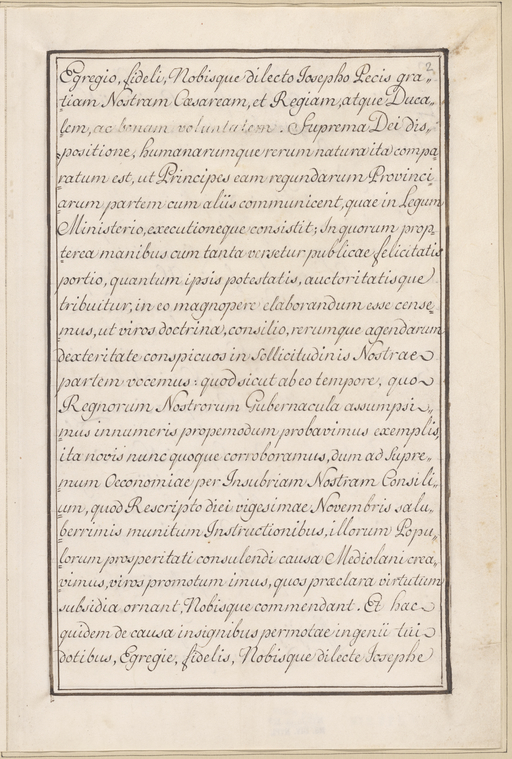 2
Egregio, fideli, Nobisque dilecto Josepho Pecis gra„
tiam Nostram Cæsaream, et Regiam, atque Duca„
lem, ac bonam voluntatem. Suprema Dei dis„
positione, humanarumque rerum natura ita compa
ratum est, ut Principes eam regundarum Provinci
arum partem cum aliis communicent, quae in Legum
Ministerio, executioneque consistit; In quorum prop
terea manibus cum tanta versetur publicae felicitatis
portio, quantum ipsis potestatis, auctoritatisque
tribuitur, in eo magnopere elaborandum esse cense„
mus, ut viros doctrina, consilio, rerumque agendarum
dexteritate conspicuos in Sollicitudinis Nostrae
partem vocemus: quod sicut ab eo tempore, quo
Regnorum Nostrorum Gubernacula assumpsi„
mus innumeris propemodum probavimus exemplis,
ita novis nunc quoque corroboramus, dum ad Supre„
mum Oeconomiae per Insubriam Nostram Consili„
um, quod Rescripto diei vigesimae Novembris salu„
berrimis munitum Instructionibus, illorum Popu„
lorum prosperitati consulendi causa Mediolani crea„
vimus, viros promotum imus, quos præclara virtutum
subsidia ornant, Nobisque commendant. Et hac
quidem de causa insignibus permotae ingenii tui
dotibus, Egregie, fidelis, Nobisque dilecte Josephe